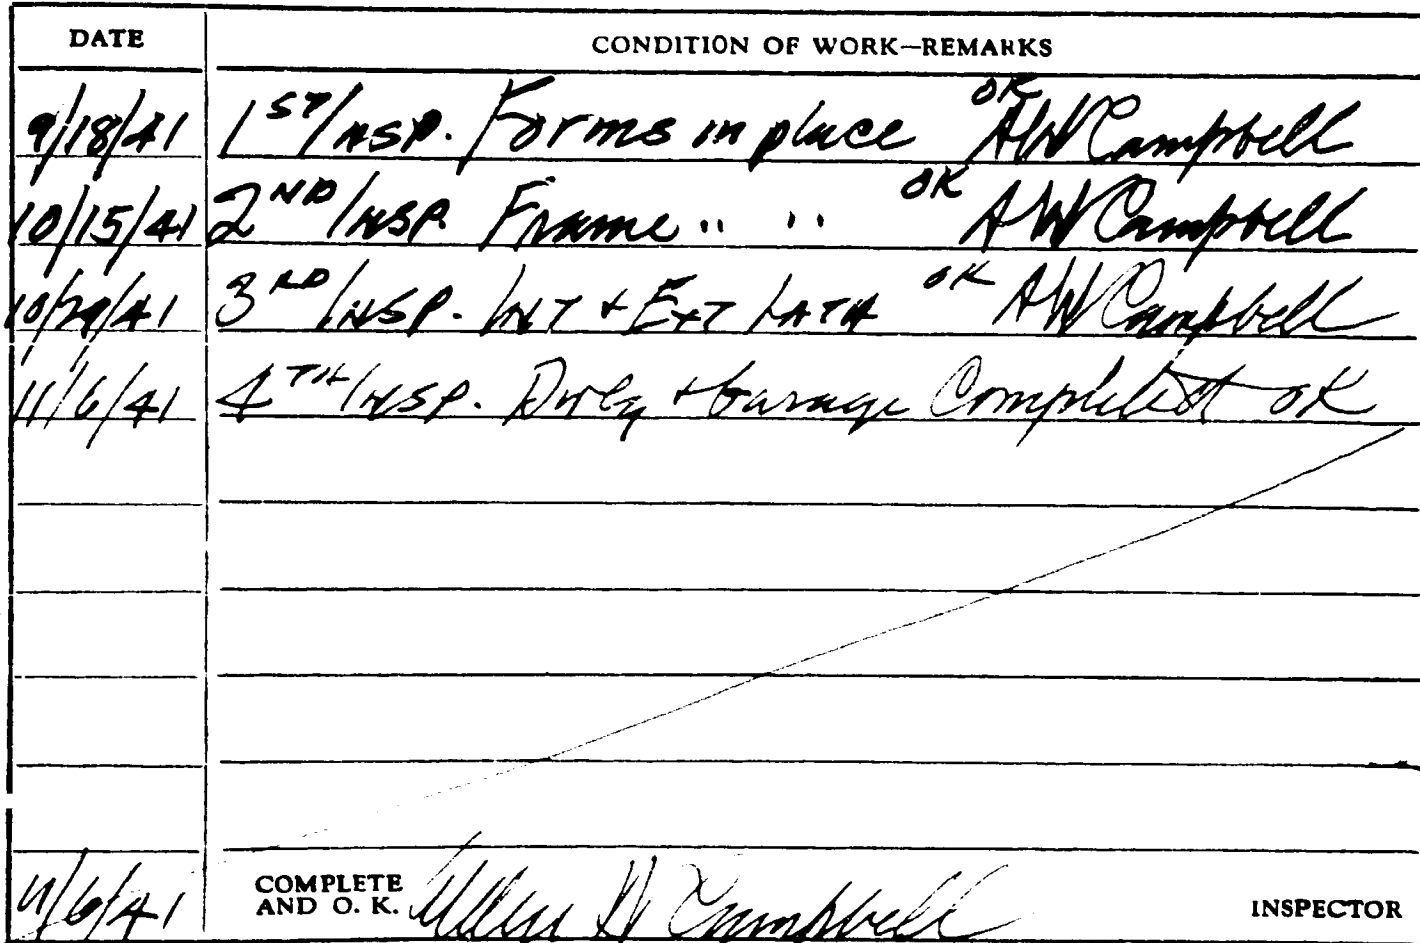 DATE CONDITION OF WORK—REMARKS
9/18/41 1ST INSP. Forms in place OK AW Campbell
10/15/41 2ND INSP. Frame " " OK AW Campbell
10/29/41 3RD INSP. INT + EXT LATH OK AW Campbell
11/6/41 4TH INSP. Dwlg + Garage Completed OK
11/6/41 COMPLETE AND O. K. Campbell INSPECTOR